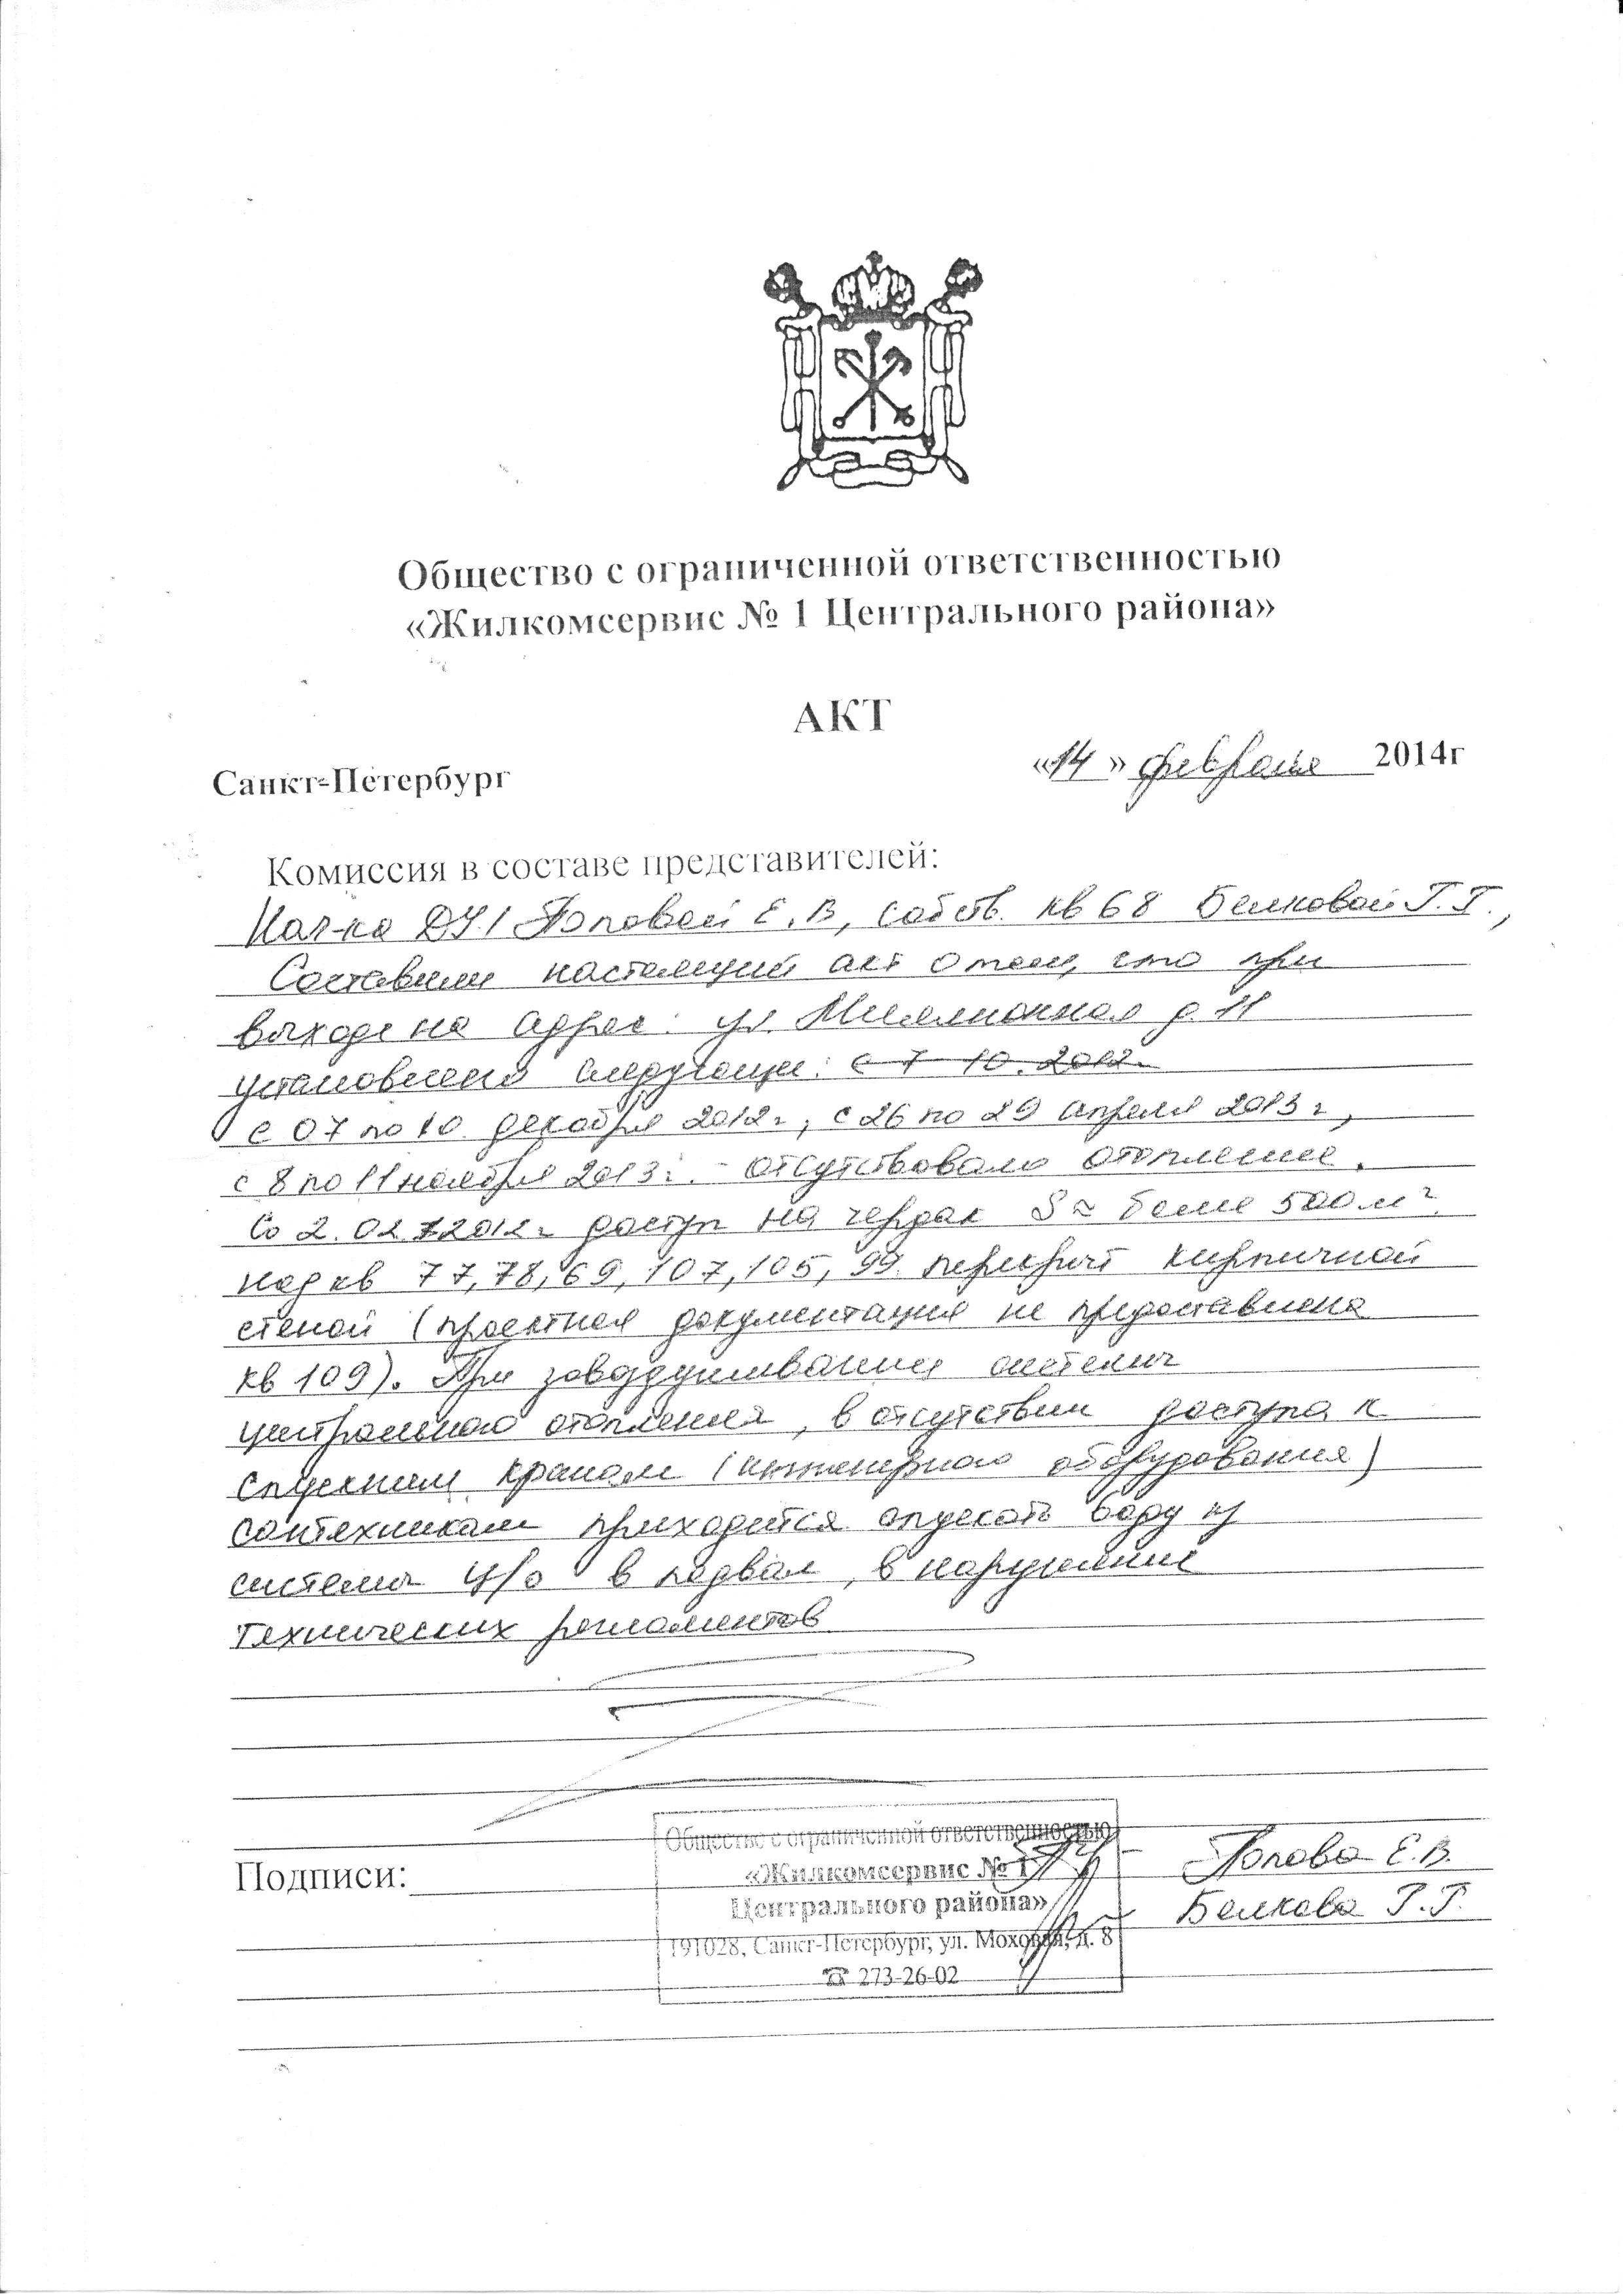 Общество с ограниченной ответственностью
«Жилкомсервис № 1 Центрального района»
АКТ
Санкт-Петербург «14» февраля 2014г
Комиссия в составе представителей:
Нач-ка ДУ1 Поповой Е.В, собств. кв 68 Белковой Г.Г.,
Составили настоящий акт о том, что при
выходе на адрес: ул. Миллионная д. 11
установлено следующее: с 7 10. 2012.
с 07 по 10 декабря 2012 г, с 26 по 29 апреля 2013 г,
с 8 по 11 ноября 2013 г. - отсутствовало отопление.
Со 2. 02. 2012 г доступ на чердак S ≈ более 500 м²
над кв 77, 78, 69, 107, 105, 99 перекрыт кирпичной
стеной (проектная документация не предоставлена
кв 109). При завоздушивании системы
центрального отопления, в отсутствии доступа к
спускным кранам (инженерного оборудования)
сантехникам приходится опускать воду из
системы ц/о в подвал, в нарушение
технических регламентов
Подписи:
Общество с ограниченной ответственностью
«Жилкомсервис № 1
Центрального района»
191028, Санкт-Петербург, ул. Моховая, д. 8
☎ 273-26-02
Попова Е.В.
Белкова Г.Г.